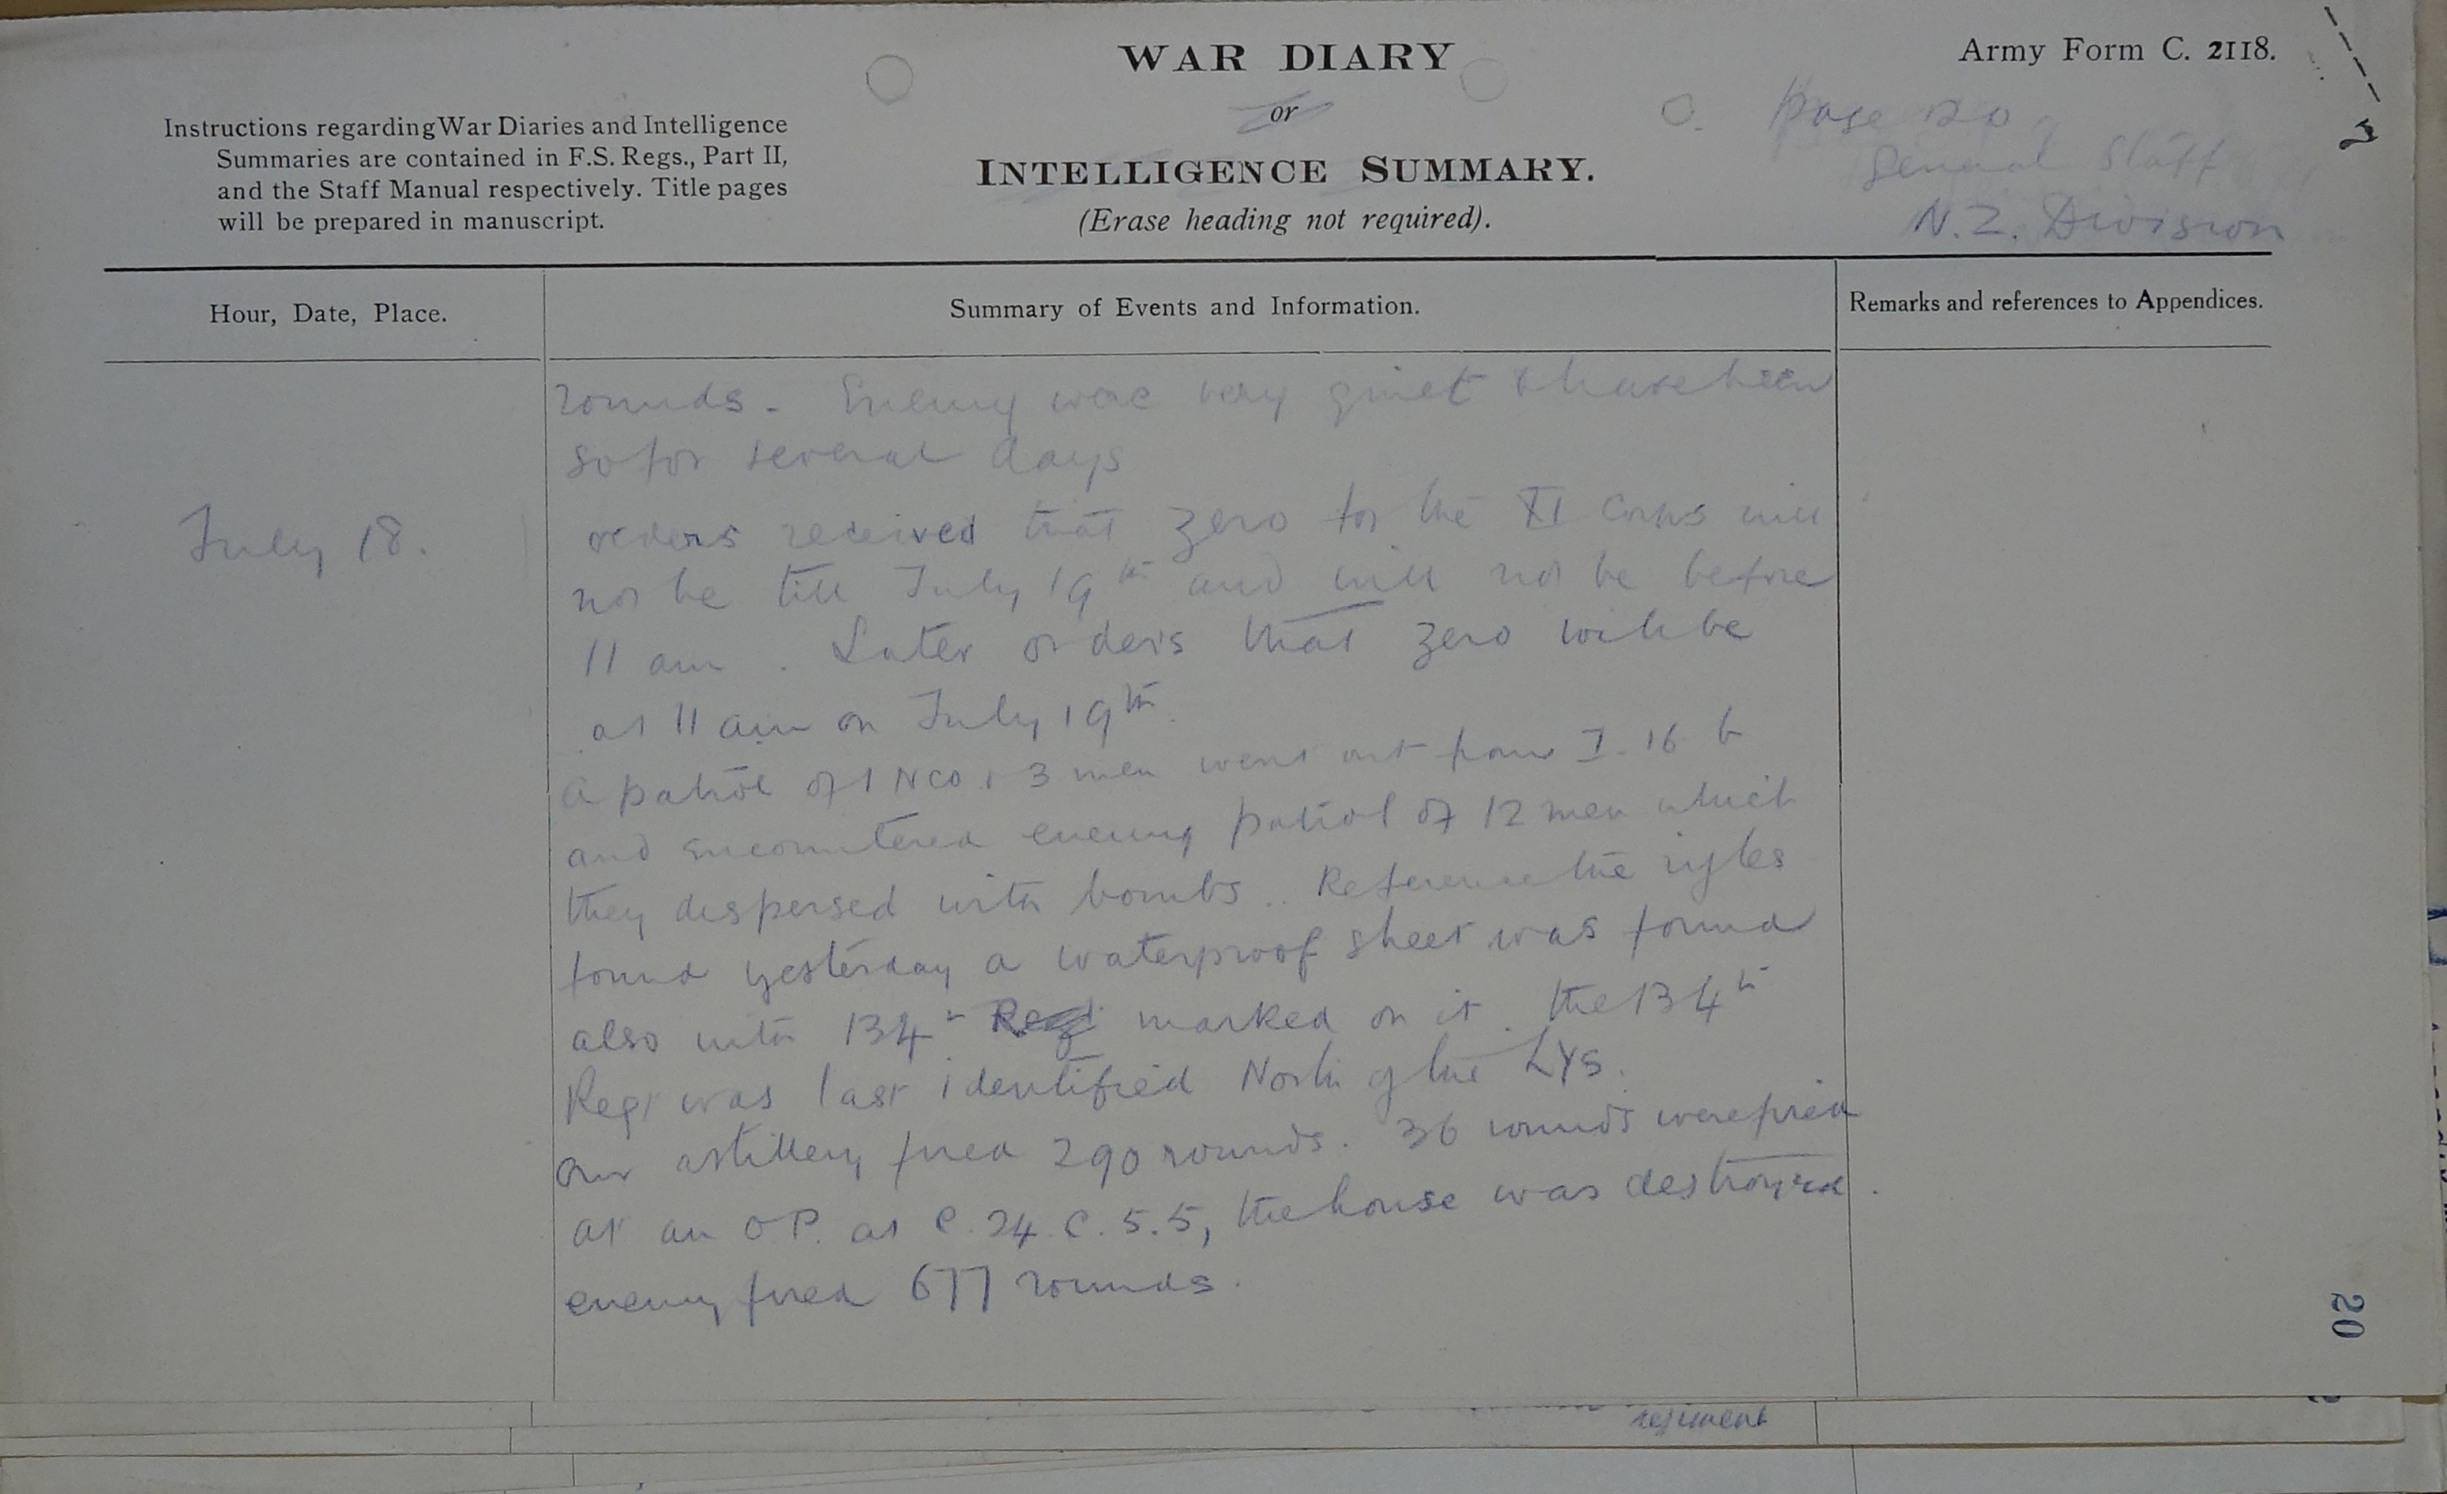 WAR DIARY
Army Form C. 2118.
or
Page 20.
Instructions regarding War Diaries and Intelligence
Summaries are contained in F.S. Regs., Part II,
and the Staff Manual respectively. Title pages
will be prepared in manuscript.
INTELLIGENCE SUMMARY.
(Erase heading not required).
General Staff
N.Z. Division
7
Hour, Date, Place.
Summary of Events and Information.
Remarks and references to Appendices.
rounds. Enemy were very quiet & have been
so for several days
July 18.
orders received that zero for the XI Corps will
not be till July 19th and will not be before
11 am. Later orders that zero will be
at 11 am on July 19th.
A patrol of 1 NCO & 3 men went out from I.16 b
and encountered enemy patrol of 12 men which
they dispersed with bombs.. Reference the rifles
found yesterday a waterproof sheet was found
also with 134th Regt marked on it. The 134th
Regt was last identified North of the LYS.
Our artillery fired 290 rounds. 36 rounds were fired
at an O.P. at C.24.C.5.5, the house was destroyed.
enemy fired 677 rounds.
20
regiment